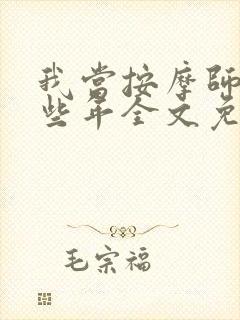 我当按摩師
些年全文免
毛宗福